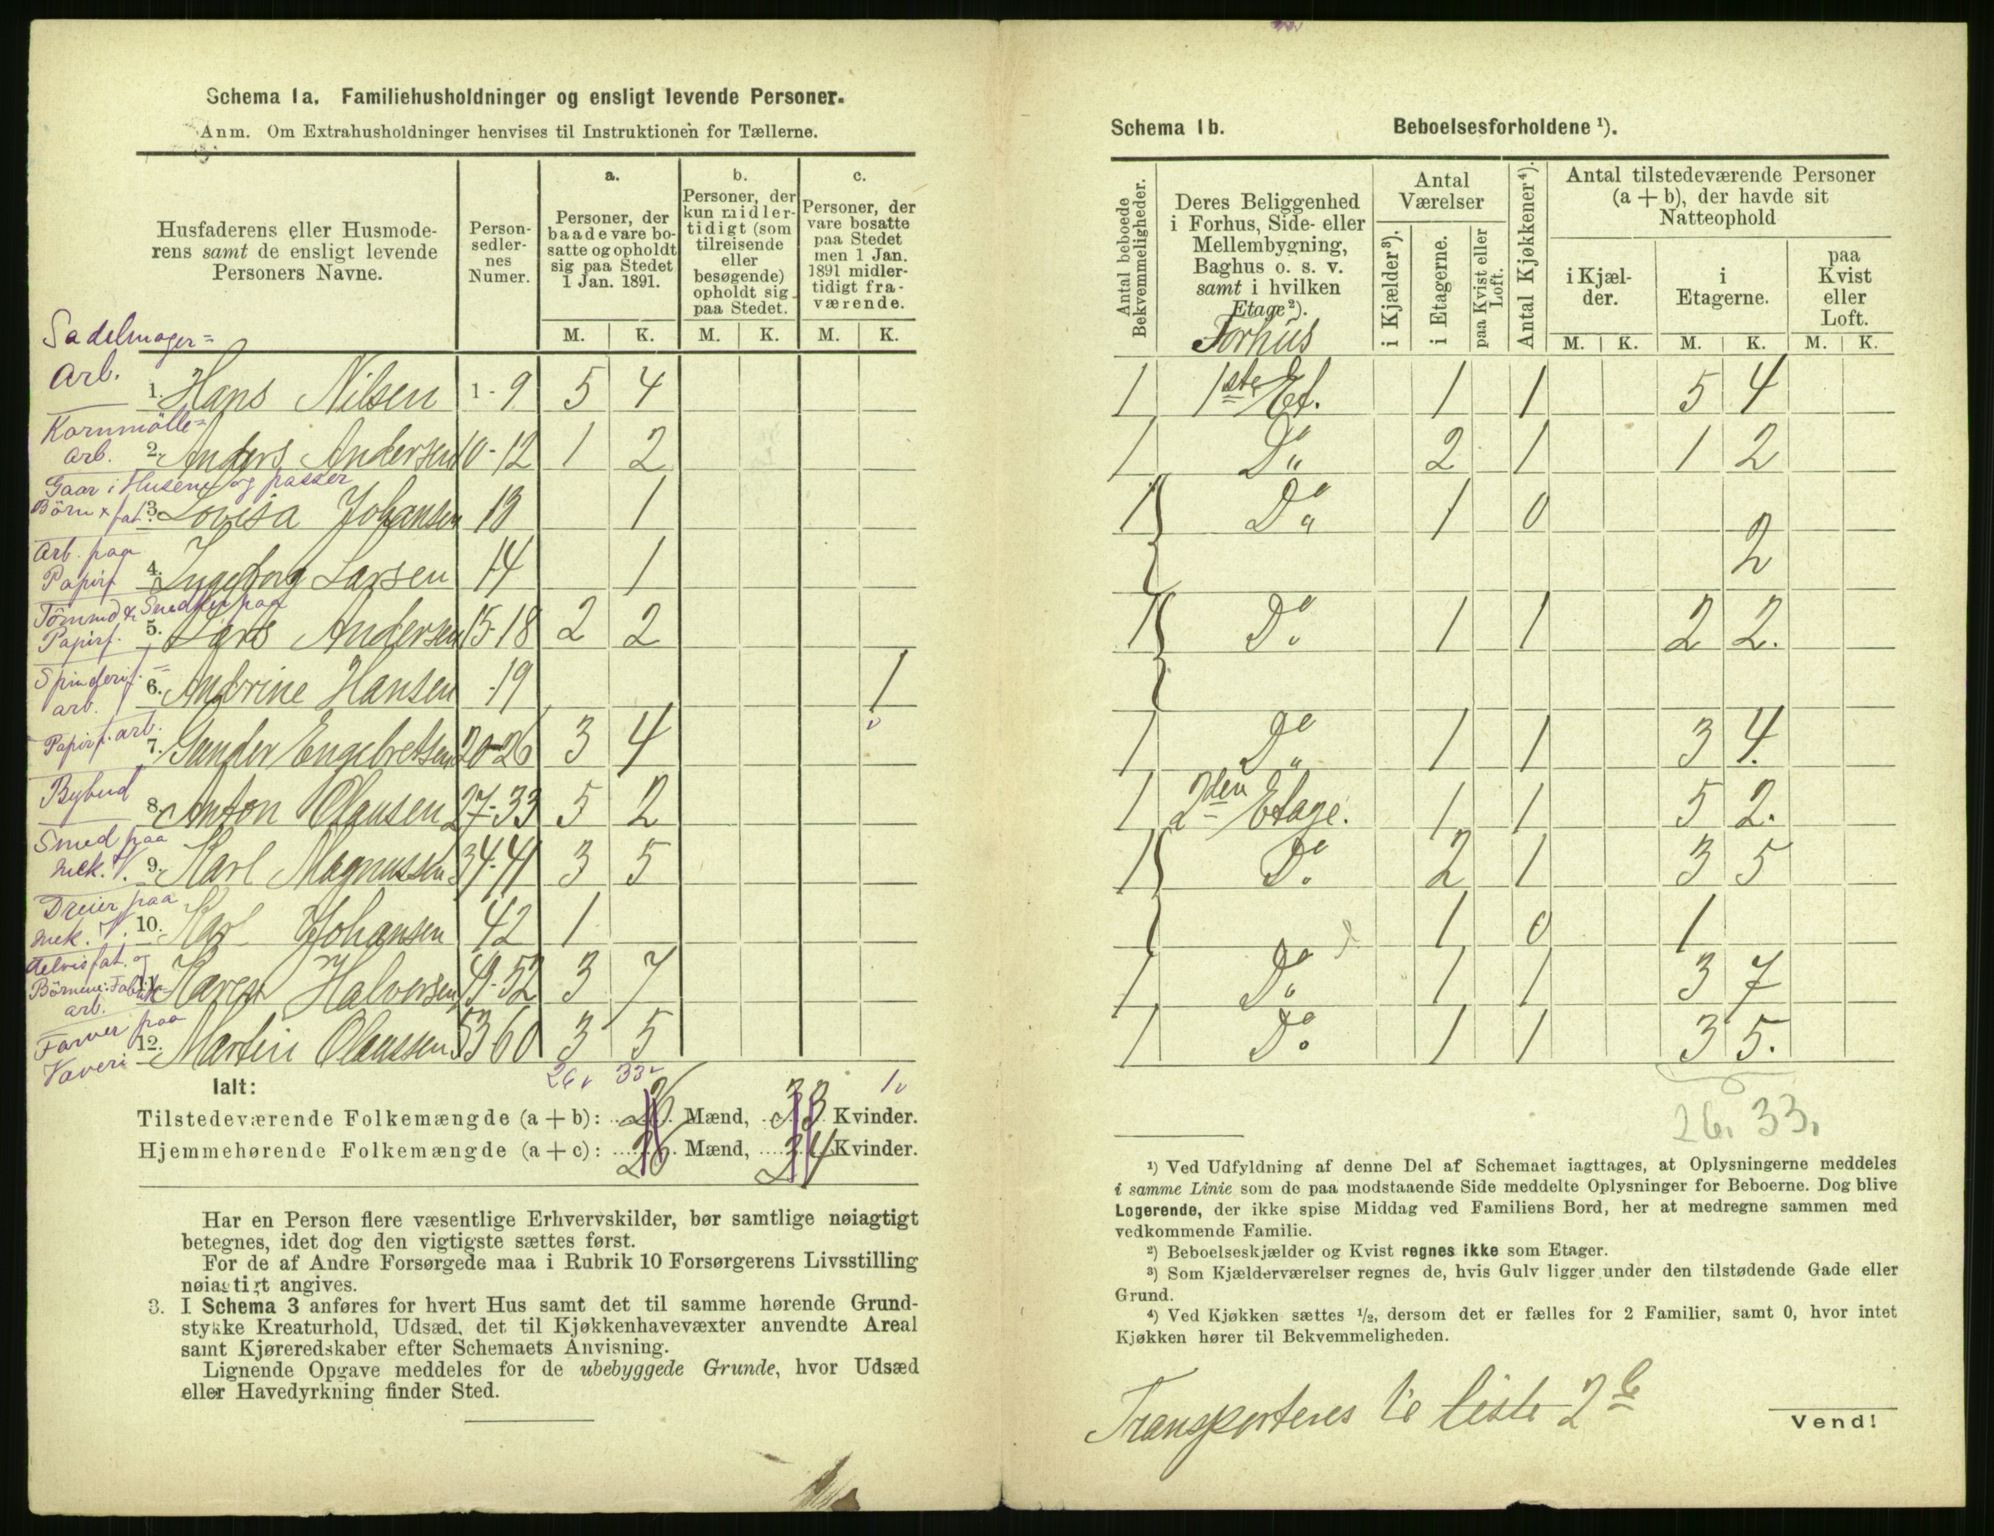 Schema 1a. Familiehusholdninger og ensligt levende Personer.
Anm. Om Extrahusholdninger henvises til Instruktionen for Tællerne.
Husfaderens eller Husmoderens samt de ensligt levende Personers Navne.
Personsedlernes Numer.
a.
Personer, der baade vare bosatte og opholdt sig paa Stedet 1 Jan. 1891.
b.
Personer, der kun midlertidigt (som tilreisende eller besøgende) opholdt sig paa Stedet.
c.
Personer, der vare bosatte paa Stedet men 1 Jan. 1891 midlertidigt fraværende.
M. K. M. K. M. K.
Sadelmager=
arb.
1. Hans Nilsen 1-9 5 4
Kornmölle=
arb.
2. Anders Andersen 10-12 1 2
Gaar i Husene og passer
Börn × fat.
3. Lovisa Johansen 13 1
Arb. paa
Papirf.
4. Ingeborg Larsen 14 1
Papirf.
5. Lars Andersen 15-18 2 2
Spinderif.=
arb.
6. Andrine Hansen 19 1
Papirf. arb.
7. Gunder Engebretsen 20-26 3 4
Bybud
8. Anton Olausen 27-33 5 2
Smed paa
Mek. V.
9. Karl Magnussen 34-41 3 5
Dreier paa
Mek. V.
10. Karl Johansen 42 1
arb.
11. Karen Halvorsen 49-52 3 7
Farver paa
Væveri
12. Martin Olaussen 53 60 3 5
26 33 1
Ialt:
Tilstedeværende Folkemængde (a + b): 26 Mænd, 33 Kvinder.
Hjemmehørende Folkemængde (a + c): 26 Mænd, 34 Kvinder.
Har en Person flere væsentlige Erhvervskilder, bør samtlige nøiagtigt
betegnes, idet dog den vigtigste sættes først.
For de af Andre Forsørgede maa i Rubrik 10 Forsørgerens Livsstilling
nøiagtigt angives.
3. I Schema 3 anføres for hvert Hus samt det til samme hørende Grund-
stykke Kreaturhold, Udsæd, det til Kjøkkenhavevæxter anvendte Areal
samt Kjøreredskaber efter Schemaets Anvisning.
Lignende Opgave meddeles for de ubebyggede Grunde, hvor Udsæd
eller Havedyrkning finder Sted.
Schema 1b. Beboelsesforholdene ¹).
Antal beboede Bekvemmeligheder.
Deres Beliggenhed i Forhus, Side- eller Mellembygning, Baghus o. s. v. samt i hvilken Etage²).
Forhus
Antal Værelser
i Kjælder³).
i Etagerne.
paa Kvist eller Loft.
Antal Kjøkkener⁴).
Antal tilstedeværende Personer (a + b), der havde sit Natteophold
i Kjælder.
i Etagerne.
paa Kvist eller Loft.
M. K. M. K. M. K.
1 1ste Et. 1 1 5 4
1 Do 2 1 1 2
1 Do 1 0
2
1 Do 1 1 2 2.
1 Do 1 1 3 4.
1 2den Etage. 1 1 5 2.
1 Do 2 1 3 5
1 0 1
1 Do 1 1 3 7
1 Do 1 1 3 5.
26. 33.
¹) Ved Udfyldning af denne Del af Schemaet iagttages, at Oplysningerne meddeles
i samme Linie som de paa modstaaende Side meddelte Oplysninger for Beboerne. Dog blive
Logerende, der ikke spise Middag ved Familiens Bord, her at medregne sammen med
vedkommende Familie.
²) Beboelseskjælder og Kvist regnes ikke som Etager.
³) Som Kjælderværelser regnes de, hvis Gulv ligger under den tilstødende Gade eller
Grund.
⁴) Ved Kjøkken sættes ½, dersom det er fælles for 2 Familier, samt 0, hvor intet
Kjøkken hører til Bekvemmeligheden.
Transporteres til Liste 2
Vend!